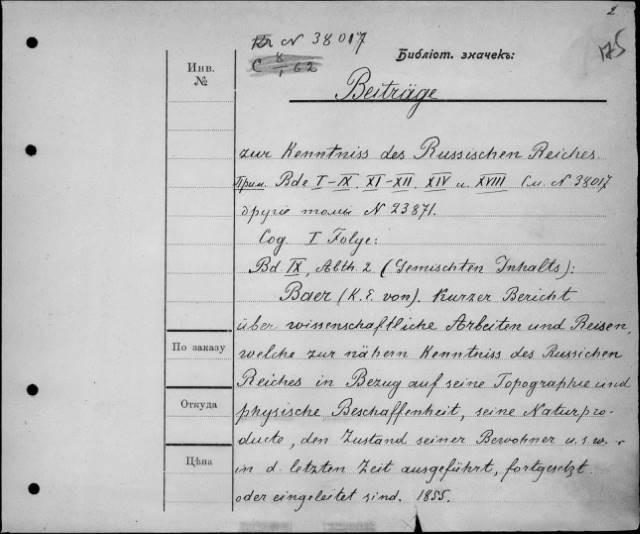 2
Kr N 38017
C 8/1 62
Библіот. значекъ:
175
Инв.
№
Beiträge
zur Kenntniss des Russischen Reiches.
Прим. Bde I–IX. XI–XII. XIV u. XVIII См. N 38017
другіе томы N 23871.
Сод. I Folge:
Bd IX, Abth. 2 (Gemischten Inhalts):
Baer (K. E. von). Kurzer Bericht
über wissenschaftliche Arbeiten und Reisen,
welche zur nähern Kenntniss des Russichen
По заказу
Reiches in Bezug auf seine Topographie und
Откуда
physische Beschaffenheit, seine Naturpro-
ducte, den Zustand seiner Bewohner u.s.w.
Цѣна
in d. letzten Zeit ausgeführt, fortgesetzt
oder eingeleitet sind. 1855.